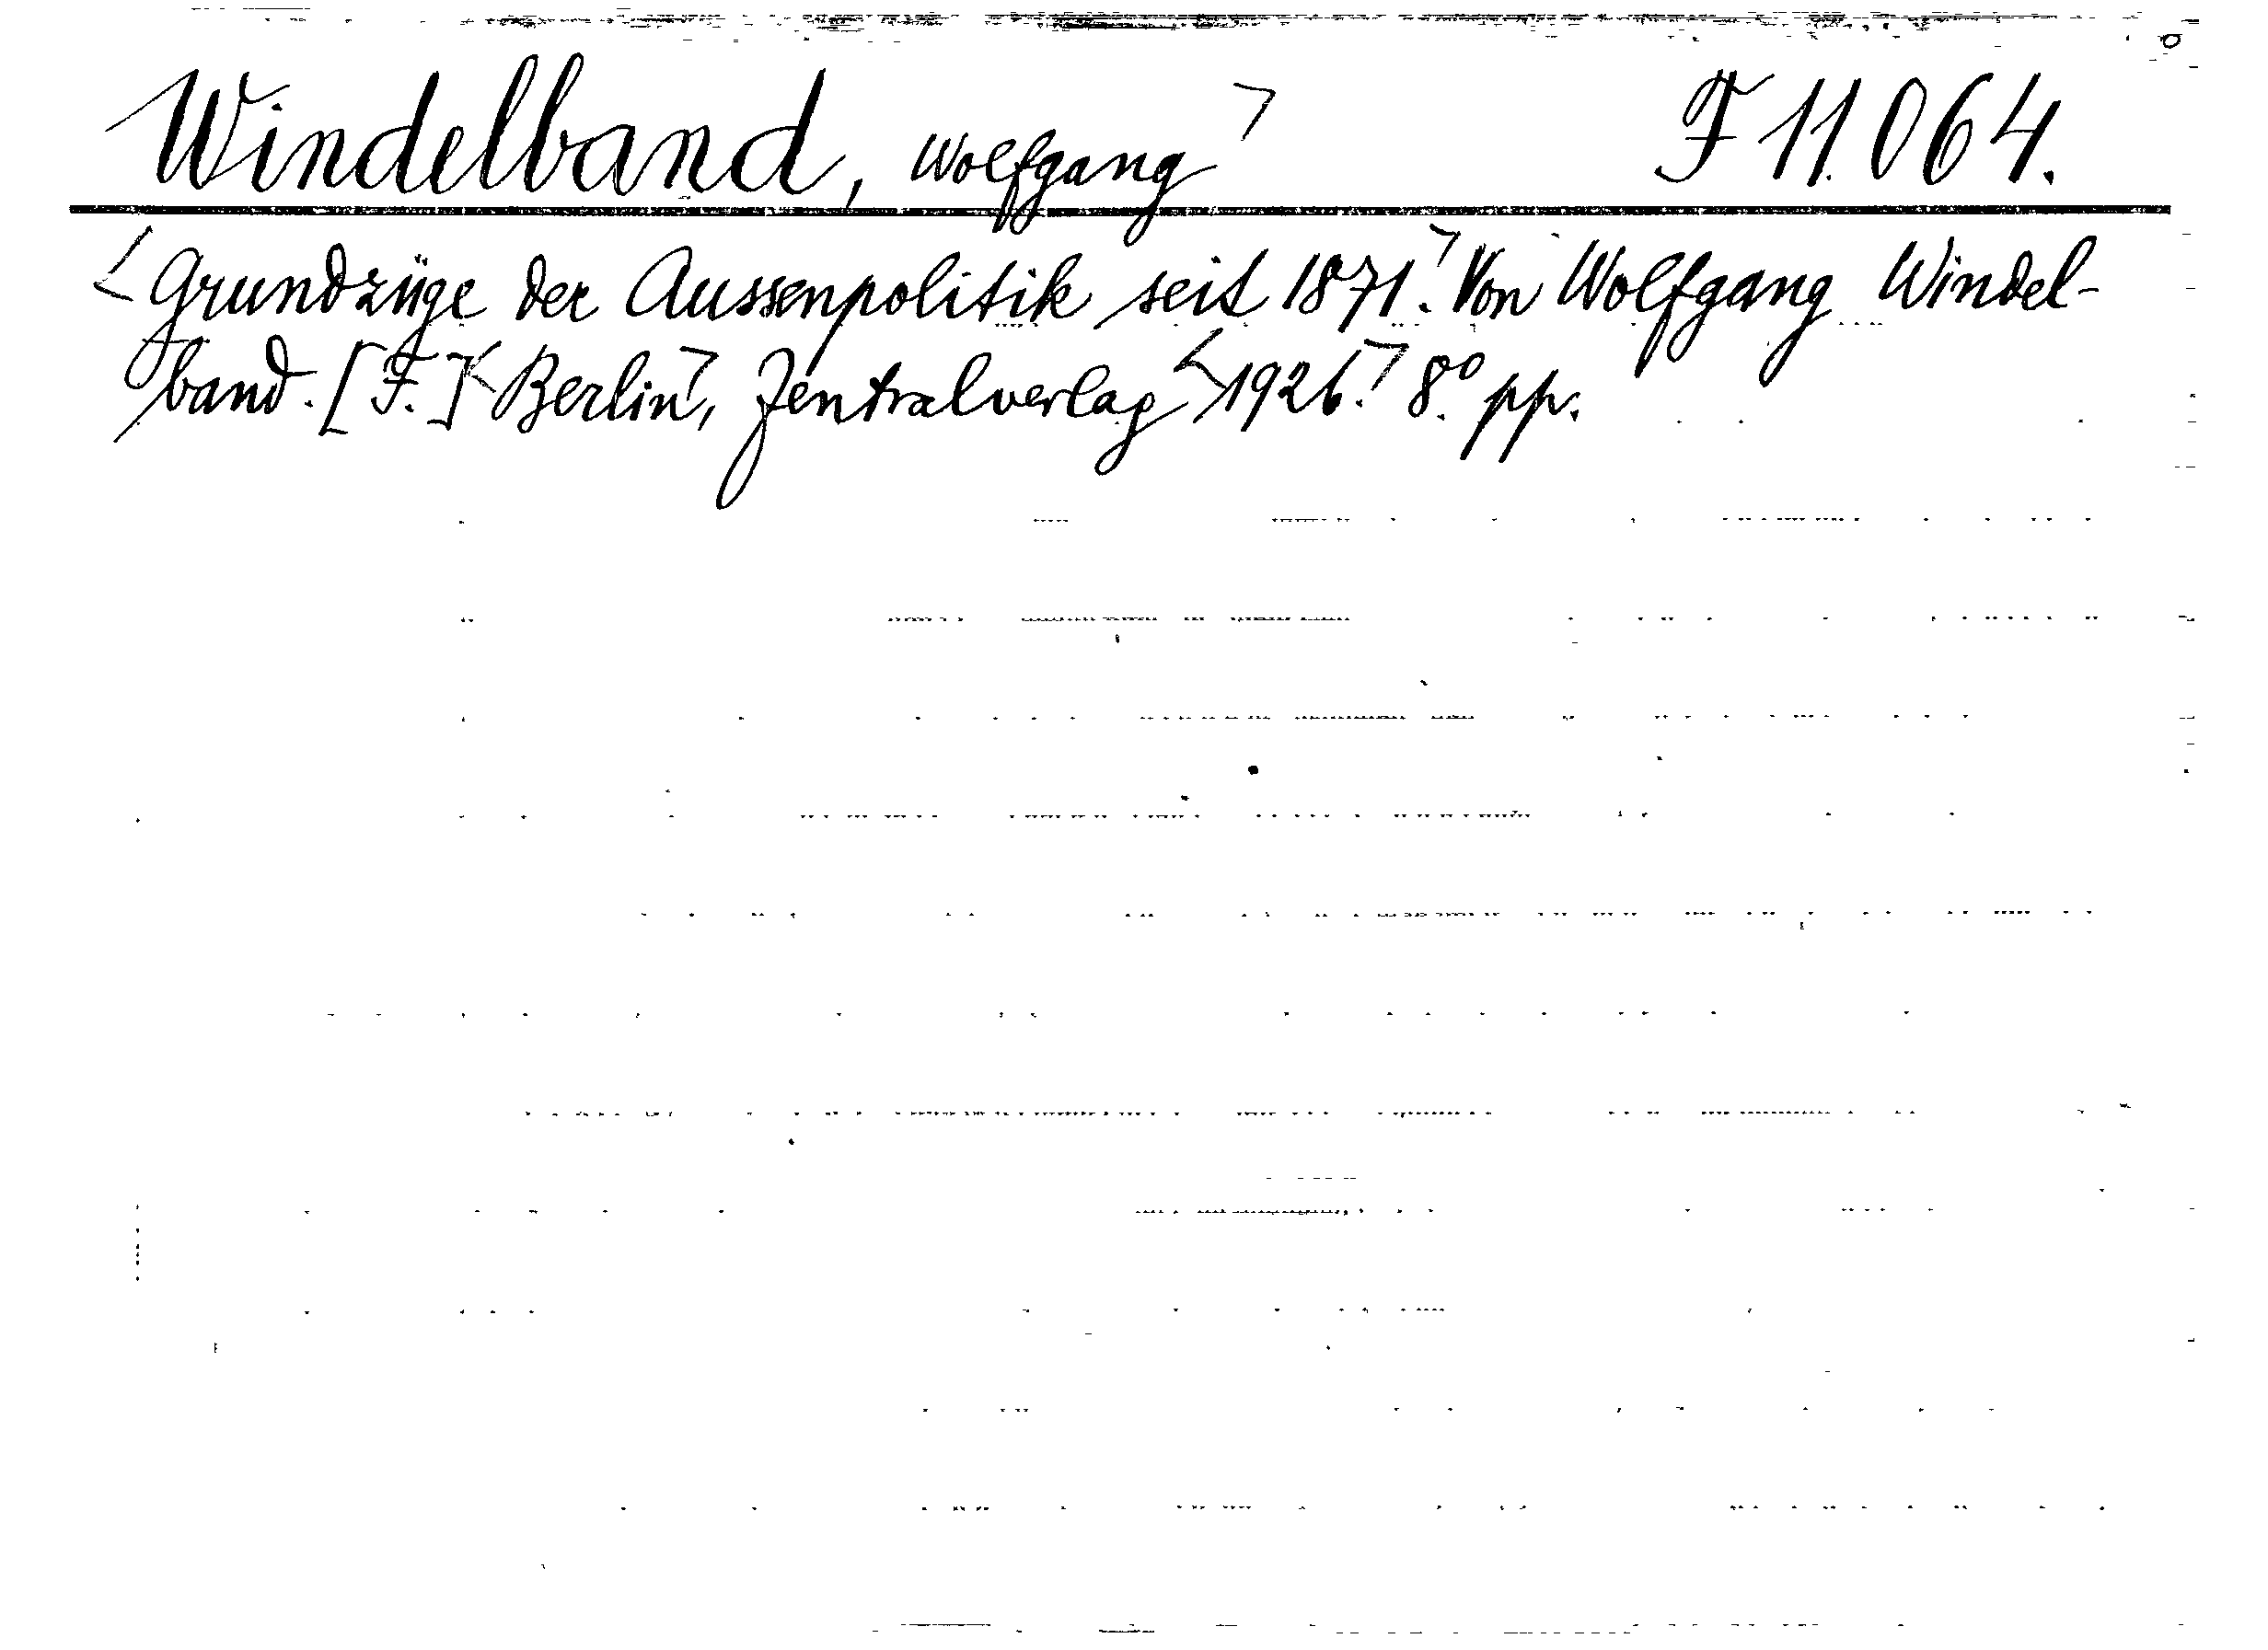 Windelband, Wolfgang> F 11.064.
<Grundzüge der Aussenpolitik seit 1871.> Von Wolfgang Windel-
band. [F.] <Berlin>, Zentralverlag <1926.> 8.° pp.